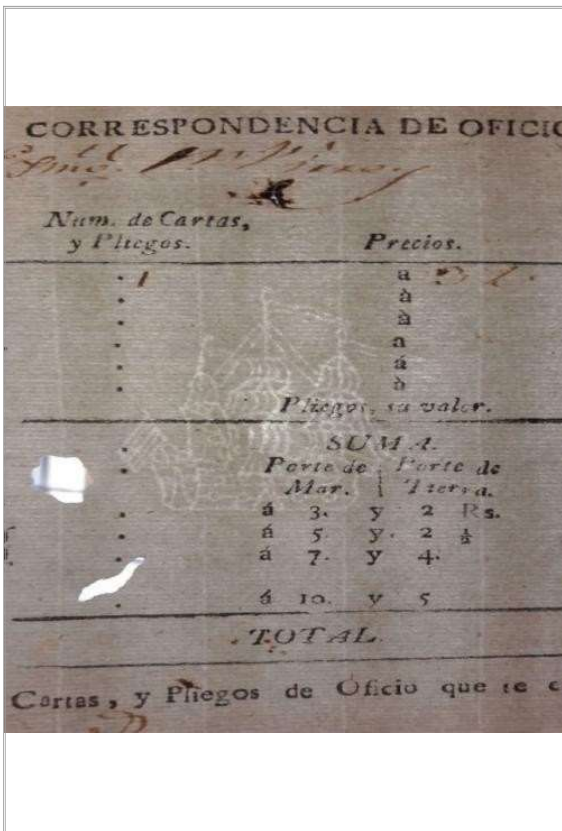 CORRESPONDENCIA DE OFICIO
Num. de Cartas,
y Pliegos. Precios.
. 1 a
. à
. à
. a
. á
. à
Pliegos, su valor.
. SUMA.
. Porte de Porte de
Mar. Tierra.
. á 3. y 2 Rs.
. á 5. y. 2 ½
. á 7. y 4.
. á 10. y 5
TOTAL.
Cartas, y Pliegos de Oficio que se